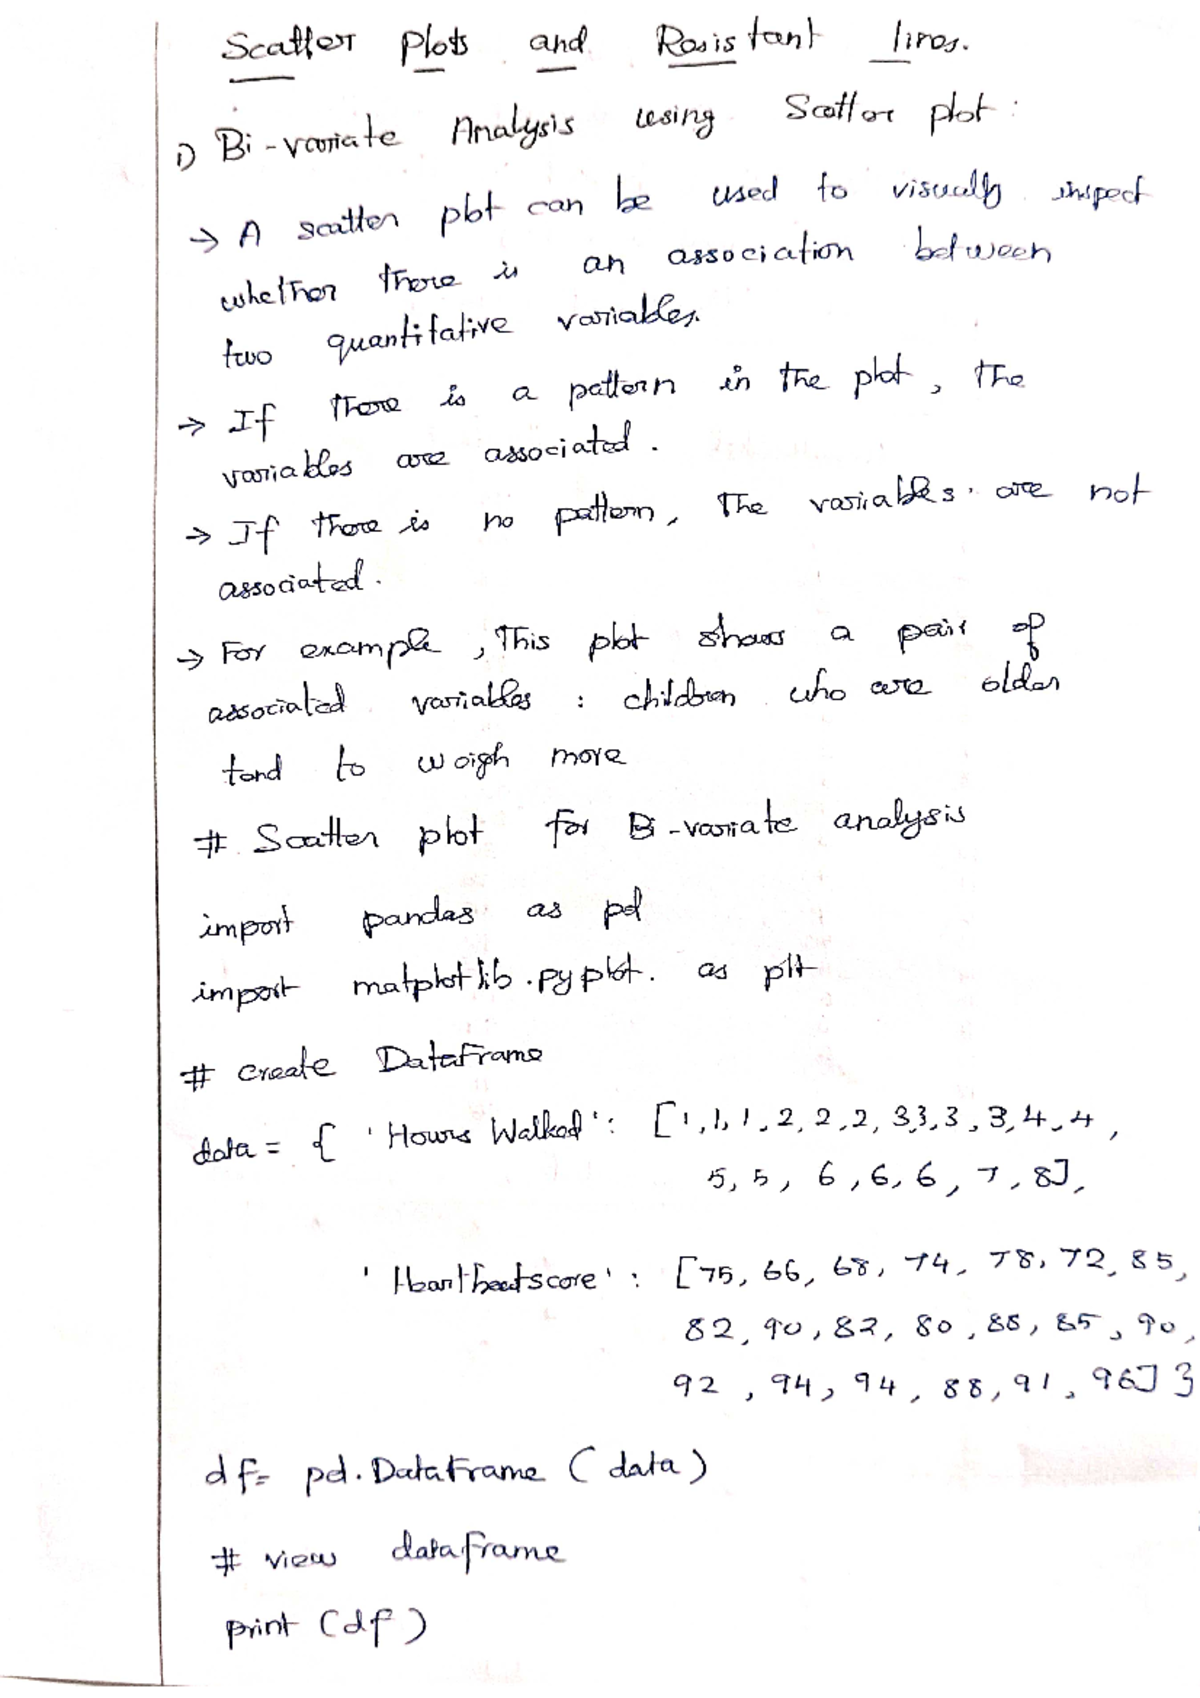 Scatter Plots and Resistant lines.
1) Bi-variate Analysis using Scatter plot:
→ A scatter plot can be used to visually inspect
whether there is an association between
two quantitative variables.
→ If there is a pattern in the plot, the
variables are associated.
→ If there is no pattern, The variables are not
associated.
→ For example, This plot shows a pair of
associated variables : children who are older
tend to weigh more
# Scatter plot for Bi-variate analysis
import pandas as pd
import matplotlib.pyplot. as plt
# create DataFrame
data = { 'Hours Walked': [1,1,1,2,2,2,3,3,3,3,4,4,
5,5,6,6,6,7,8],
'Heartbeatscore': [75, 66, 68, 74, 78, 72, 85,
82, 90, 82, 80, 88, 85, 90,
92, 94, 94, 88, 91, 96] }
df= pd.DataFrame (data)
# view dataframe
print (df)